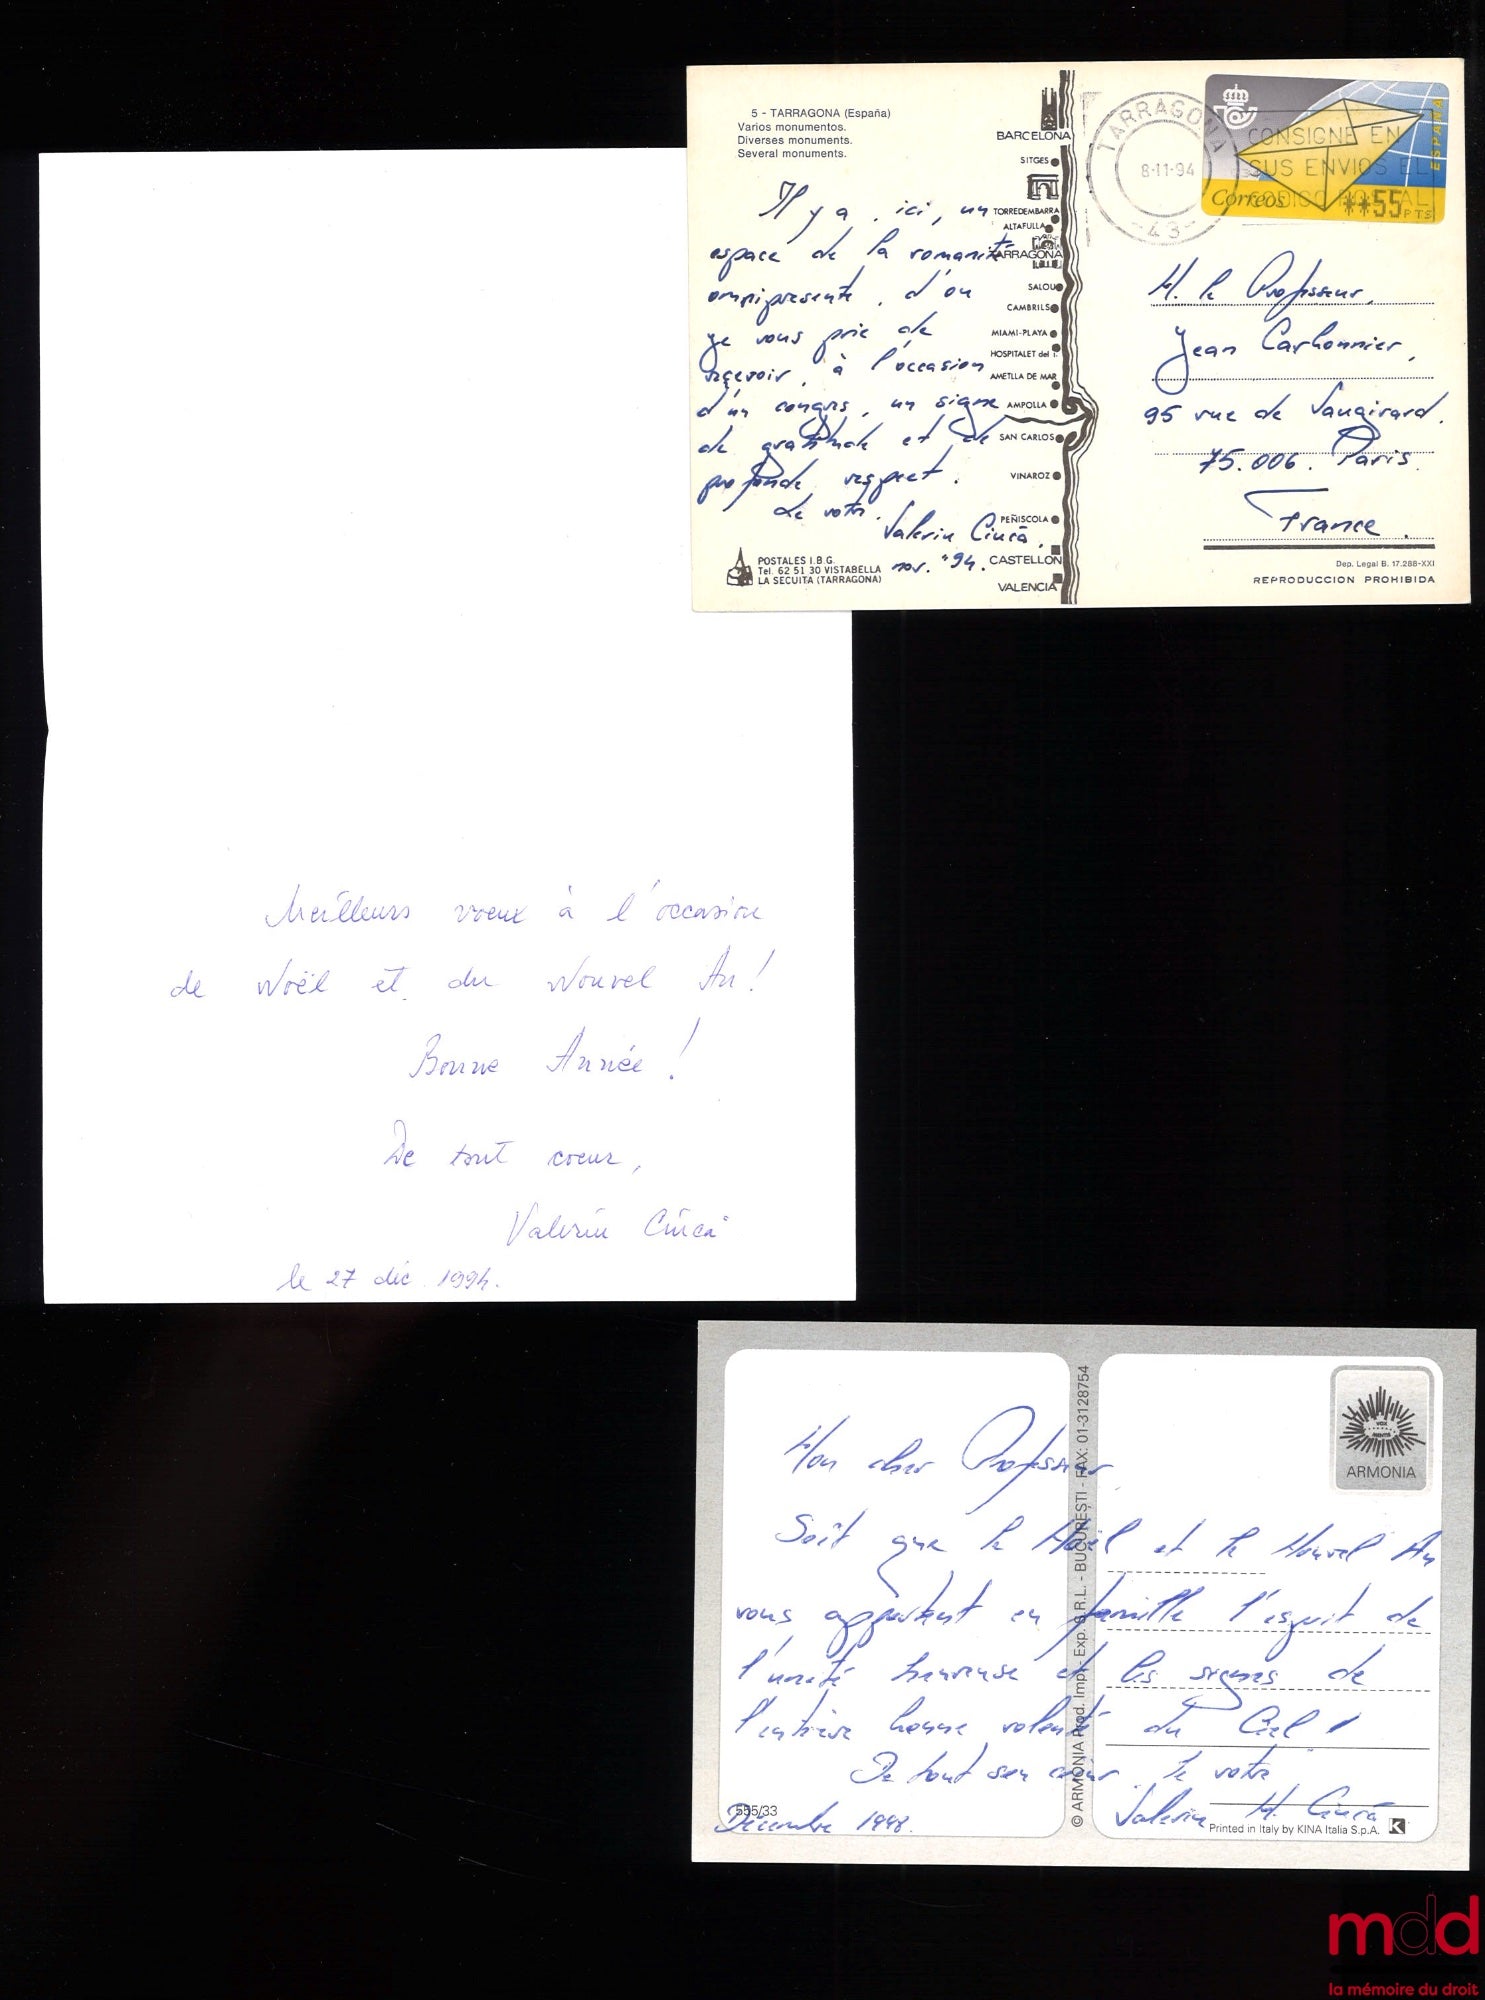 5 - TARRAGONA (España)
Varios monumentos.
Diverses monuments.
Several monuments.
Il y a, ici, un
espace de la romanité
omniprésente, d'où
je vous prie de
recevoir, à l'occasion
d'un congrès, un signe
de gratitude et de
profonde respect.
Le votre,
Valeriu Ciucă,
nov. '94.
POSTALES I.B.G.
Tel. 62 51 30 VISTABELLA
LA SECUITA (TARRAGONA)
BARCELONA
SITGES
TORREDEMBARRA
ALTAFULLA
TARRAGONA
SALOU
CAMBRILS
MIAMI-PLAYA
HOSPITALET del I.
AMETLLA DE MAR
AMPOLLA
SAN CARLOS
VINAROZ
PEÑISCOLA
CASTELLON
VALENCIA
TARRAGONA
8-11-94
-43-
CONSIGNE EN
SUS ENVIOS EL
CODIGO POSTAL
ESPAÑA
Correos
**55 PTS
M. le Professeur,
Jean Carbonnier,
95 rue de Vaugirard.
75.006. Paris.
France.
Dep. Legal B. 17.288-XXI
REPRODUCCION PROHIBIDA
Meilleurs voeux à l'occasion
de Noël et du Nouvel An!
Bonne Année!
De tout coeur,
Valeriu Ciucă
le 27 déc. 1994.
Mon cher Professeur,
Soit que le Noël et le Nouvel An
vous apportent en famille l'esprit de
l'unité heureuse et les signes de
l'entière bonne volonté du Ciel!
De tout son cœur, le votre
Valeriu M. Ciucă
Décembre 1998.
555/33
© ARMONIA Prod. Imp. - Exp. S.R.L. - BUCUREŞTI - FAX: 01-3128754
VOX
MENTIS
ARMONIA
Printed in Italy by KINA Italia S.p.A. K
mdd
la mémoire du droit